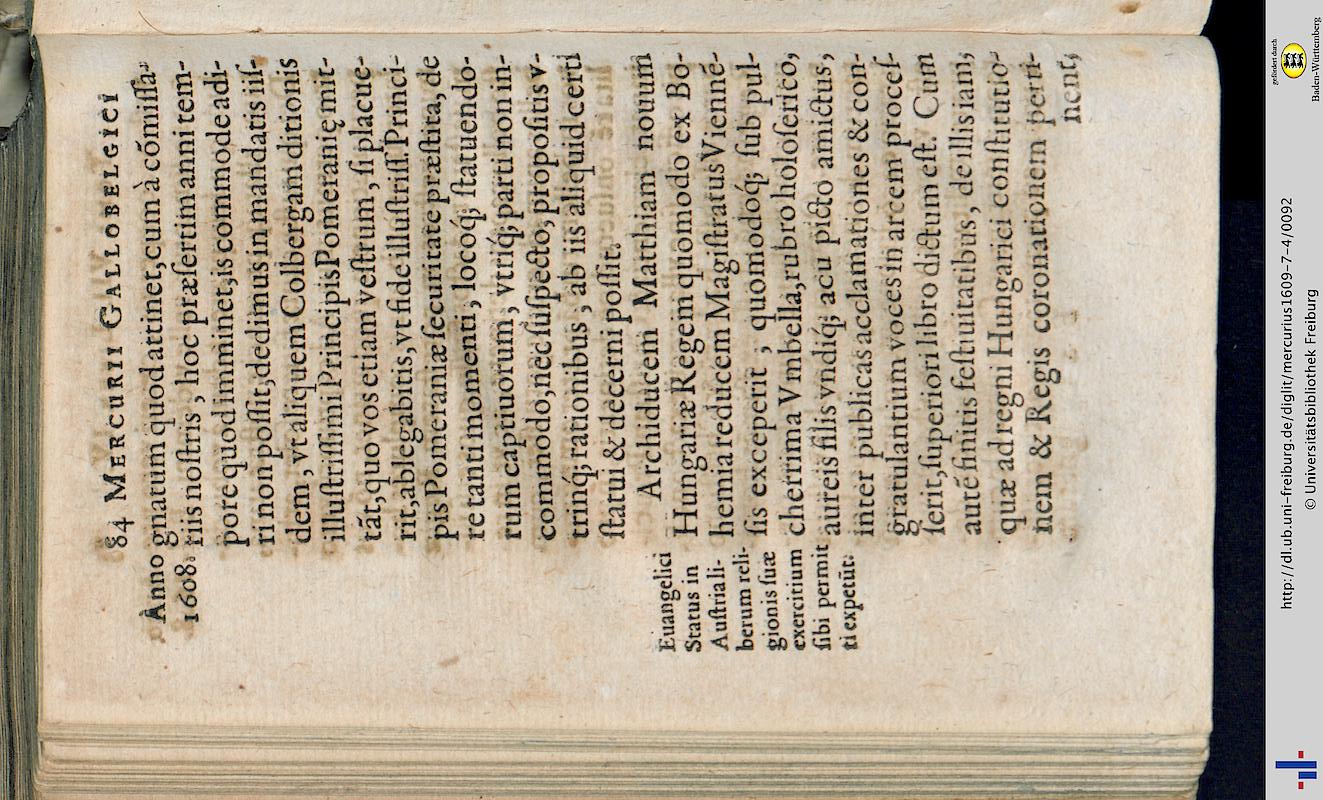 84 MERCURII GALLOBELGICI
Anno
1608.
gnatum quod attinet, cum à cōmiſſa-
riis noſtris, hoc præſertim anni tem-
pore quod imminet, is commode adi-
ri non poſſit, dedimus in mandatis iiſ-
dem, vt aliquem Colbergam ditionis
illuſtriſſimi Principis Pomeranię mit-
tāt, quo vos etiam veſtrum, ſi placue-
rit, ablegabitis, vt fide illuſtriſſ. Princi-
pis Pomeraniæ ſecuritate præſtita, de
re tanti momenti, locoq́; ſtatuendo-
rum captiuorum, vtríq; parti non in-
commodo, nec ſuſpecto, propoſitis v-
trinq́; rationibus, ab iis aliquid certi
ſtatui & decerni poſſit.
Euangelici
Status in
Auſtria li-
berum reli-
gionis ſuæ
exercitium
ſibi permit
ti expetūt.
Archiducem Matthiam nouum
Hungariæ Regem quomodo ex Bo-
hemia reducem Magiſtratus Vienné-
ſis exceperit, quomodoq́; ſub pul-
cherrima Vmbella, rubro holoſerico,
aureis filis vndíq; acu picto amictus,
inter publicas acclamationes & con-
gratulantium voces in arcem proceſ-
ſerit, ſuperiori libro dictum eſt. Cum
autē finitis feſtiuitatibus, de illis iam,
quæ ad regni Hungarici conſtitutio-
nem & Regis coronationem perti-
nent,
gefördert durch
Baden-Württemberg
http://dl.ub.uni-freiburg.de/diglit/mercurius1609-7-4/0092
© Universitätsbibliothek Freiburg